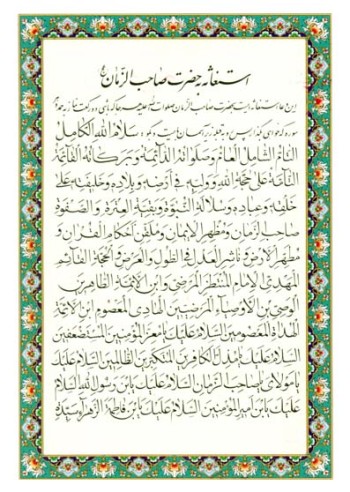 استغاثه حضرت صاحب الزمان
این دعا استغاثه ایست بحضرت صاحب الزمان صلوات الله علیه هر جا که باشی دو رکعت نماز بحمد و
سوره که خواهی بگذار پس رو بقبله زیر آسمان بایست و بگو: سَلامُ اللهِ الْكامِلُ
التّامُّ الشّامِلُ الْعامُّ وَصَلَواتُهُ الدّائِمَةُ وَبَرَكاتُهُ الْقائِمَةُ
التّامَّةُ عَلى حُجَّةِ اللهِ وَوَلِيِّهِ فى اَرْضِهِ وَبِلادِهِ وَخَليفَتِهِ عَلى
خَلْقِهِ وَعِبادِهِ وَسُلالَةِ النُّبُوَّةِ وَبَقِيَّةِ الْعِتْرَةِ وَالصَّفْوَةِ
صاحِبِ الزَّمانِ وَمُظْهِرِ الْايمانِ وَمُلَقِّنِ اَحْكامِ الْقُرْانِ وَ
مُطَهِّرِ الْاَرْضِ وَناشِرِ الْعَدْلِ فِى الطُّولِ وَالْعَرْضِ وَالْحُجَّةِ الْقائِمِ
الْمَهْدِىِّ الْاِمامِ الْمُنْتَظَرِ الْمَرْضِىِّ وَابْنِ الْاَئِمَّةِ الطّاهِرينَ
الْوَصِىِّ بْنِ الْاَوْصِياءِ الْمَرْضِيّينَ الْهادِى الْمَعْصُومِ ابْنِ الْاَئِمَّةِ
الْهُداةِ الْمَعْصُومينَ اَلسَّلامُ عَلَيْكَ يا مُعِزَّ الْمُؤْمِنينَ الْمُسْتَضْعَفينَ
اَلسَّلامُ عَلَيْكَ يا مُذِلَّ الْكافِرينَ الْمُتَكَبِّرينَ الظّالِمينَ اَلسَّلامُ عَلَيْكَ
يا مَوْلاىَ يا صاحِبَ الزَّمانِ اَلسَّلامُ عَلَيْكَ يَابْنَ رَسُولِ اللهِ اَلسَّلامُ
عَلَيْكَ يَابْنَ اَميرِ الْمُؤْمِنينَ اَلسَّلامُ عَلَيْكَ يَابْنَ فاطِمَةَ الزَّهْراءِ سَيِّدَةِ